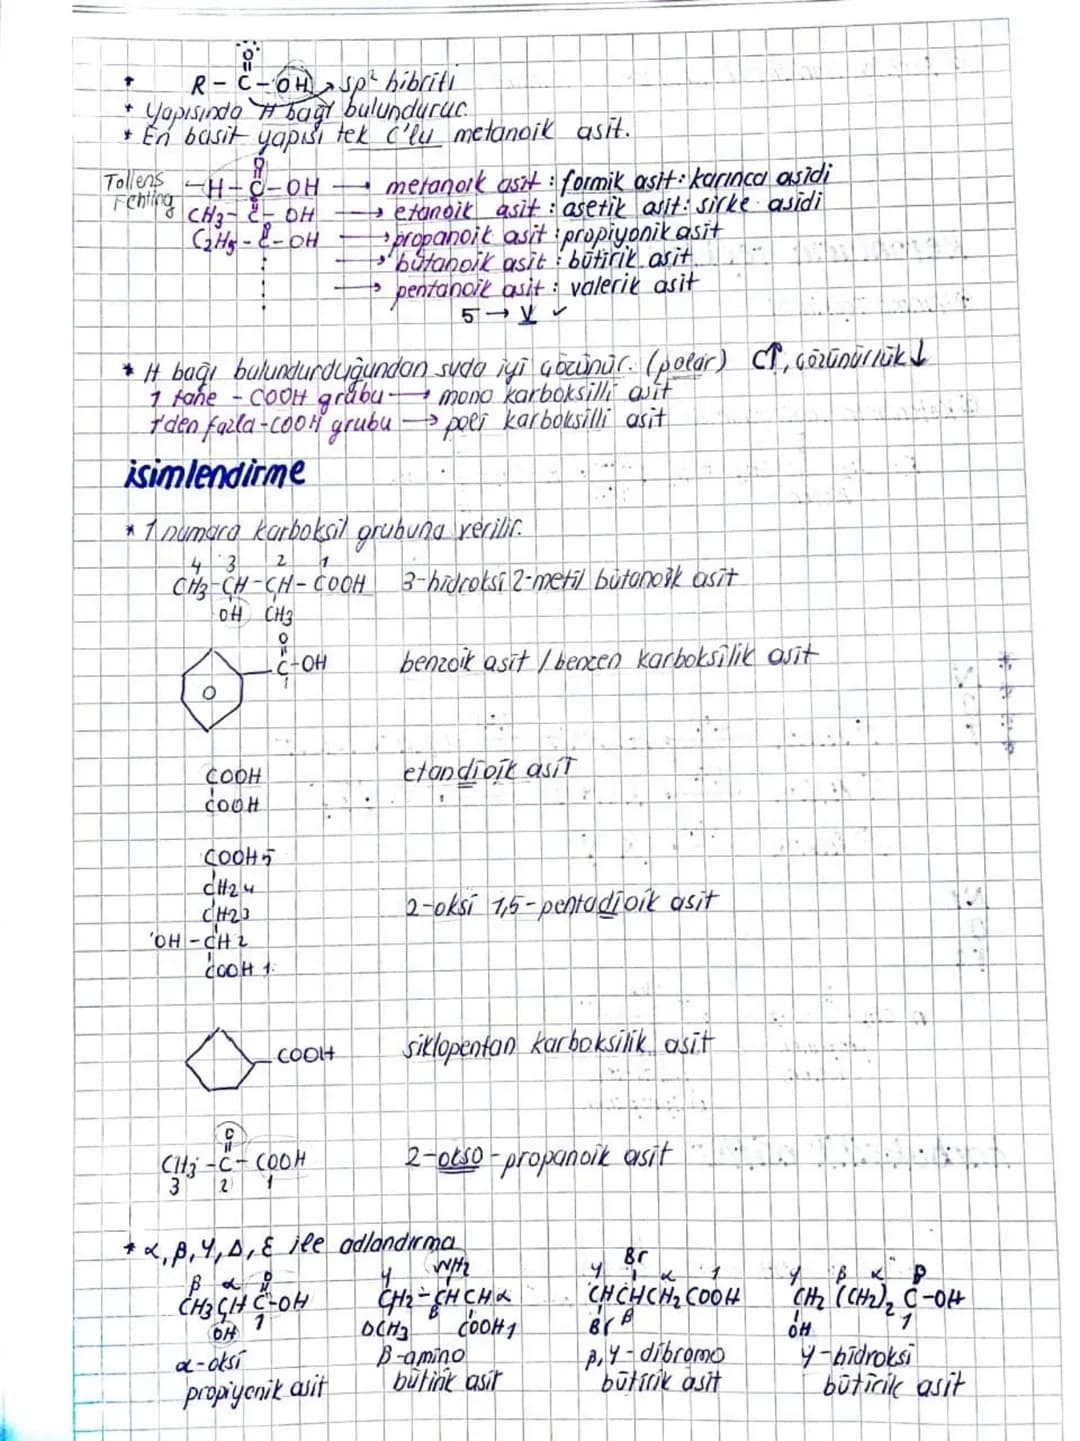 O
* R - C - OH → sp² hibriti
* Yapısında H bağı bulundurur.
* En basit yapısı tek C'lu metanoik asit.
Tollens
Fehling
H - C - OH → metanoik asit : formik asit : karınca asidi
CH3 - C - OH → etanoik asit : asetik asit : sirke asidi
C2H5 - C - OH → propanoik asit : propiyonik asit
→ bütanoik asit : bütirik asit
→ pentanoik asit : valerik asit
5 → V ✓
* H bağı bulundurduğundan suda iyi çözünür. (polar) C↑, çözünürlük↓
1 tane - COOH grubu → mono karboksilli asit
1'den fazla -COOH grubu → poli karboksilli asit
isimlendirme
* 1 numara karboksil grubuna verilir.
4 3 2 1
CH3-CH-CH-COOH 3-hidroksi 2-metil bütanoik asit
OH CH3
O
C-OH benzoik asit / benzen karboksilik asit
COOH etandioik asit
COOH
COOH 5
CH2 4
CH2 3 2-oksi 1,5-pentadioik asit
OH - CH 2
COOH 1
COOH siklopentan karboksilik asit
O
CH3 - C - COOH 2-okso-propanoik asit
3 2 1
* α, β, γ, Δ, ε ile adlandırma
β α O
CH3 CH C-OH
OH 1
α-oksi
propiyonik asit
γ NH2
CH2-CH CH α
OCH3 β COOH 1
β-amino
bütirik asit
γ Br α 1
CHCHCH2COOH
Br β
β,γ-dibromo
bütirik asit
γ β α O
CH2 (CH2)2 C-OH
OH 1
γ-hidroksi
bütirik asit